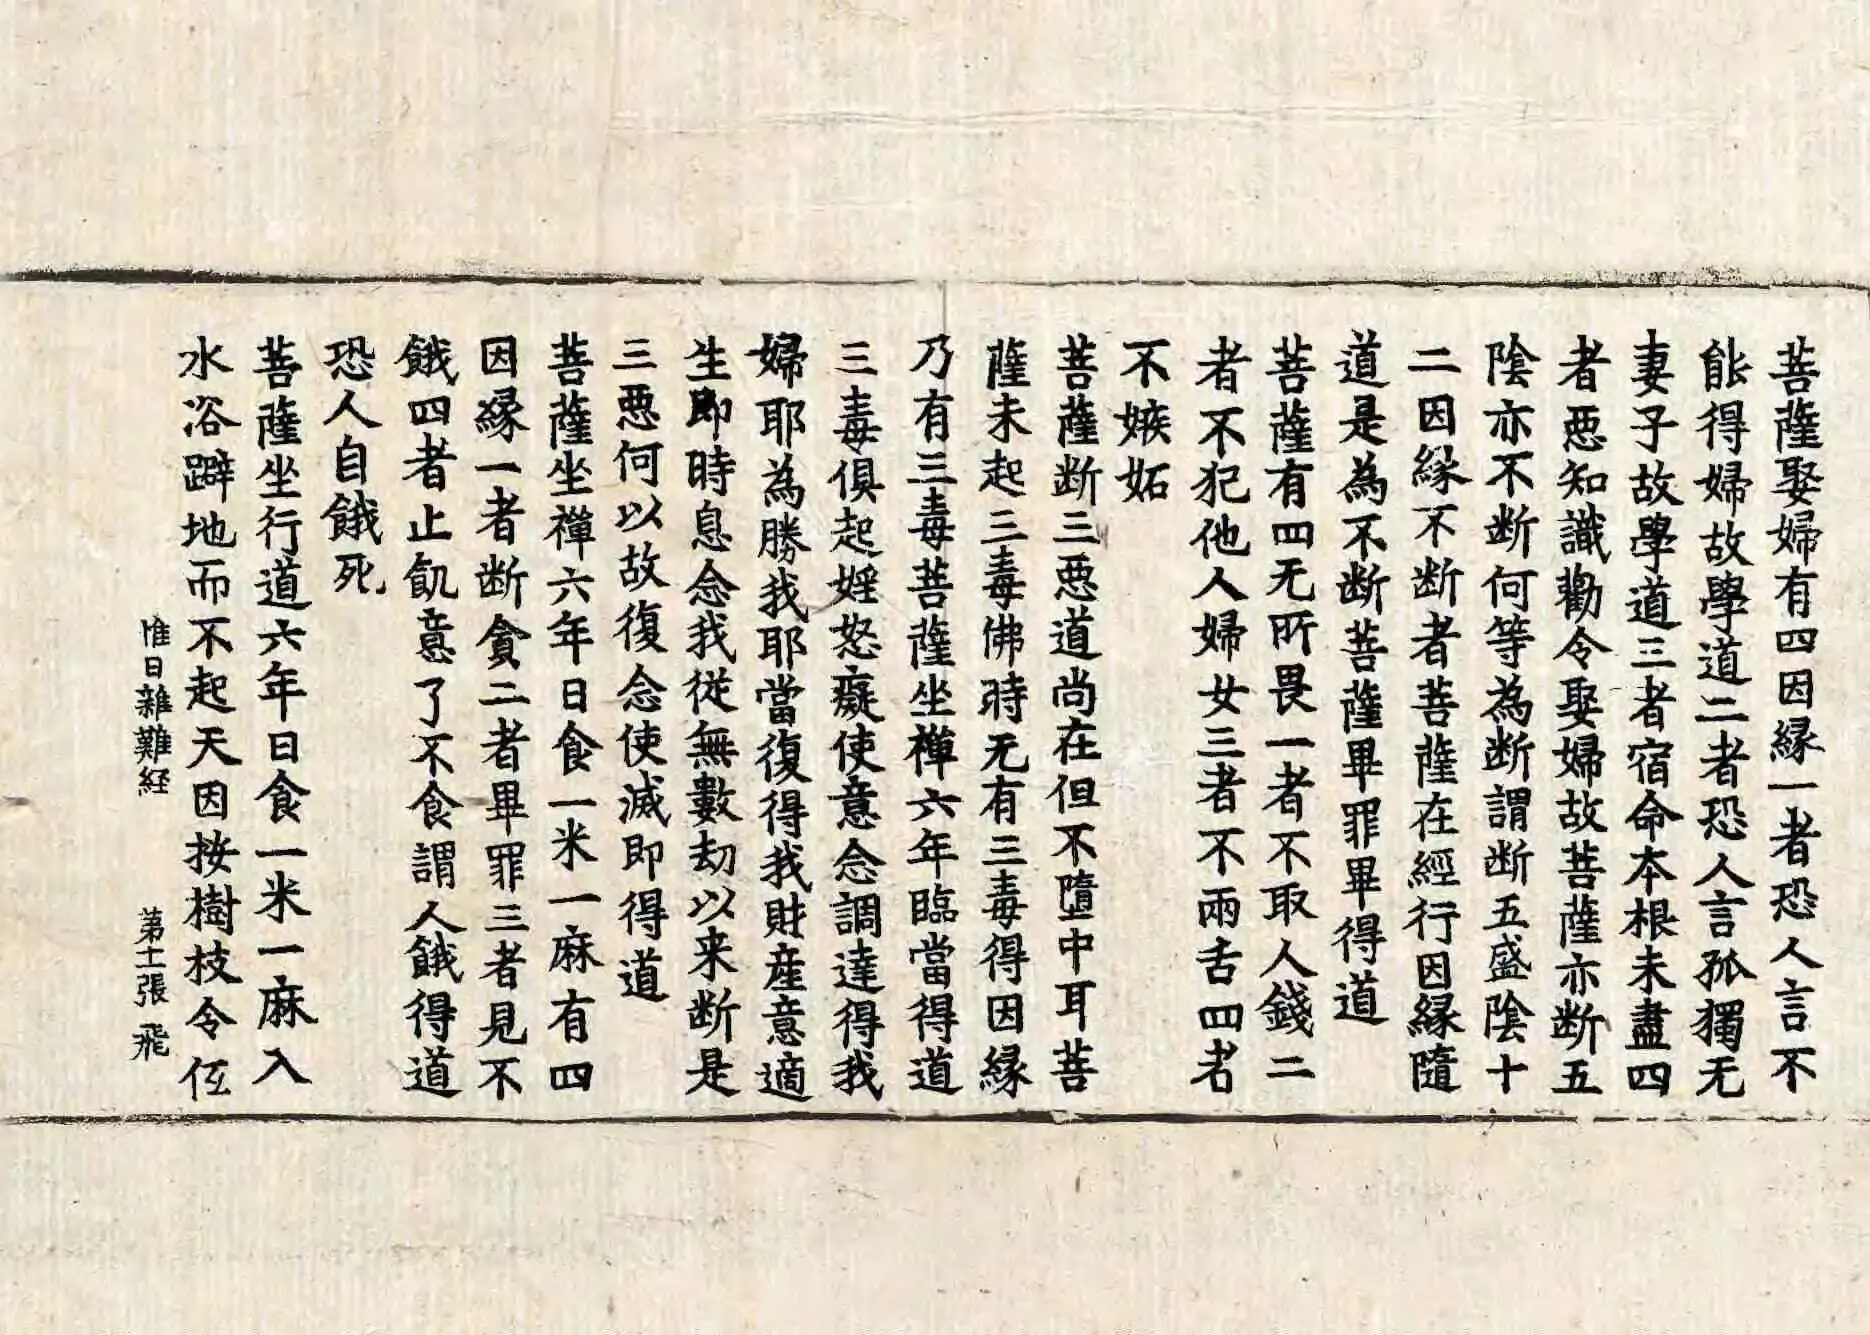 菩薩娶婦有四因縁一者恐人言不
能得婦故學道二者恐人言孤獨无
妻子故學道三者宿命本根未盡四
者惡知識勸令娶婦故菩薩亦断五
陰亦不断何等為断謂断五盛陰十
二因縁不断者菩薩在經行因縁隨
道是為不断菩薩畢罪畢得道
菩薩有四无所畏一者不取人錢二
者不犯他人婦女三者不兩舌四者
不嫉妬
菩薩断三惡道尚在但不墮中耳菩
薩未起三毒佛時无有三毒得因縁
乃有三毒菩薩坐禪六年臨當得道
三毒俱起婬怒癡使意念調達得我
婦耶為勝我耶當復得我財産意適
生即時息念我従無數劫以来断是
三惡何以故復念使滅即得道
菩薩坐禪六年日食一米一麻有四
因縁一者断貪二者畢罪三者見不
餓四者止飢意了不食謂人餓得道
恐人自餓死
菩薩坐行道六年日食一米一麻入
水浴躃地而不起天因按樹枝令伍
惟日雜難経 第十一張 飛